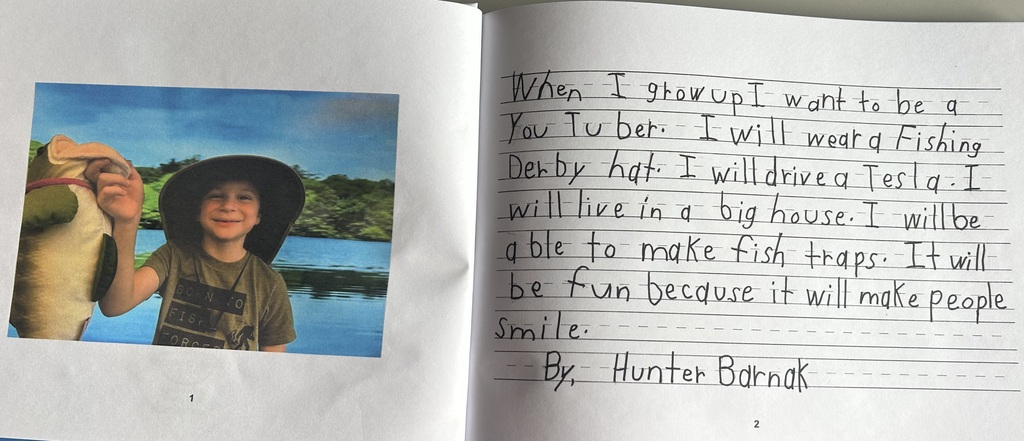 BORN TO
FISH
FORCED
1
When I grow up I want to be a
You Tuber. I will wear a Fishing
Derby hat. I will drive a Tesla. I
will live in a big house. I will be
able to make fish traps. It will
be fun because it will make people
smile.
By, Hunter Barnak
2